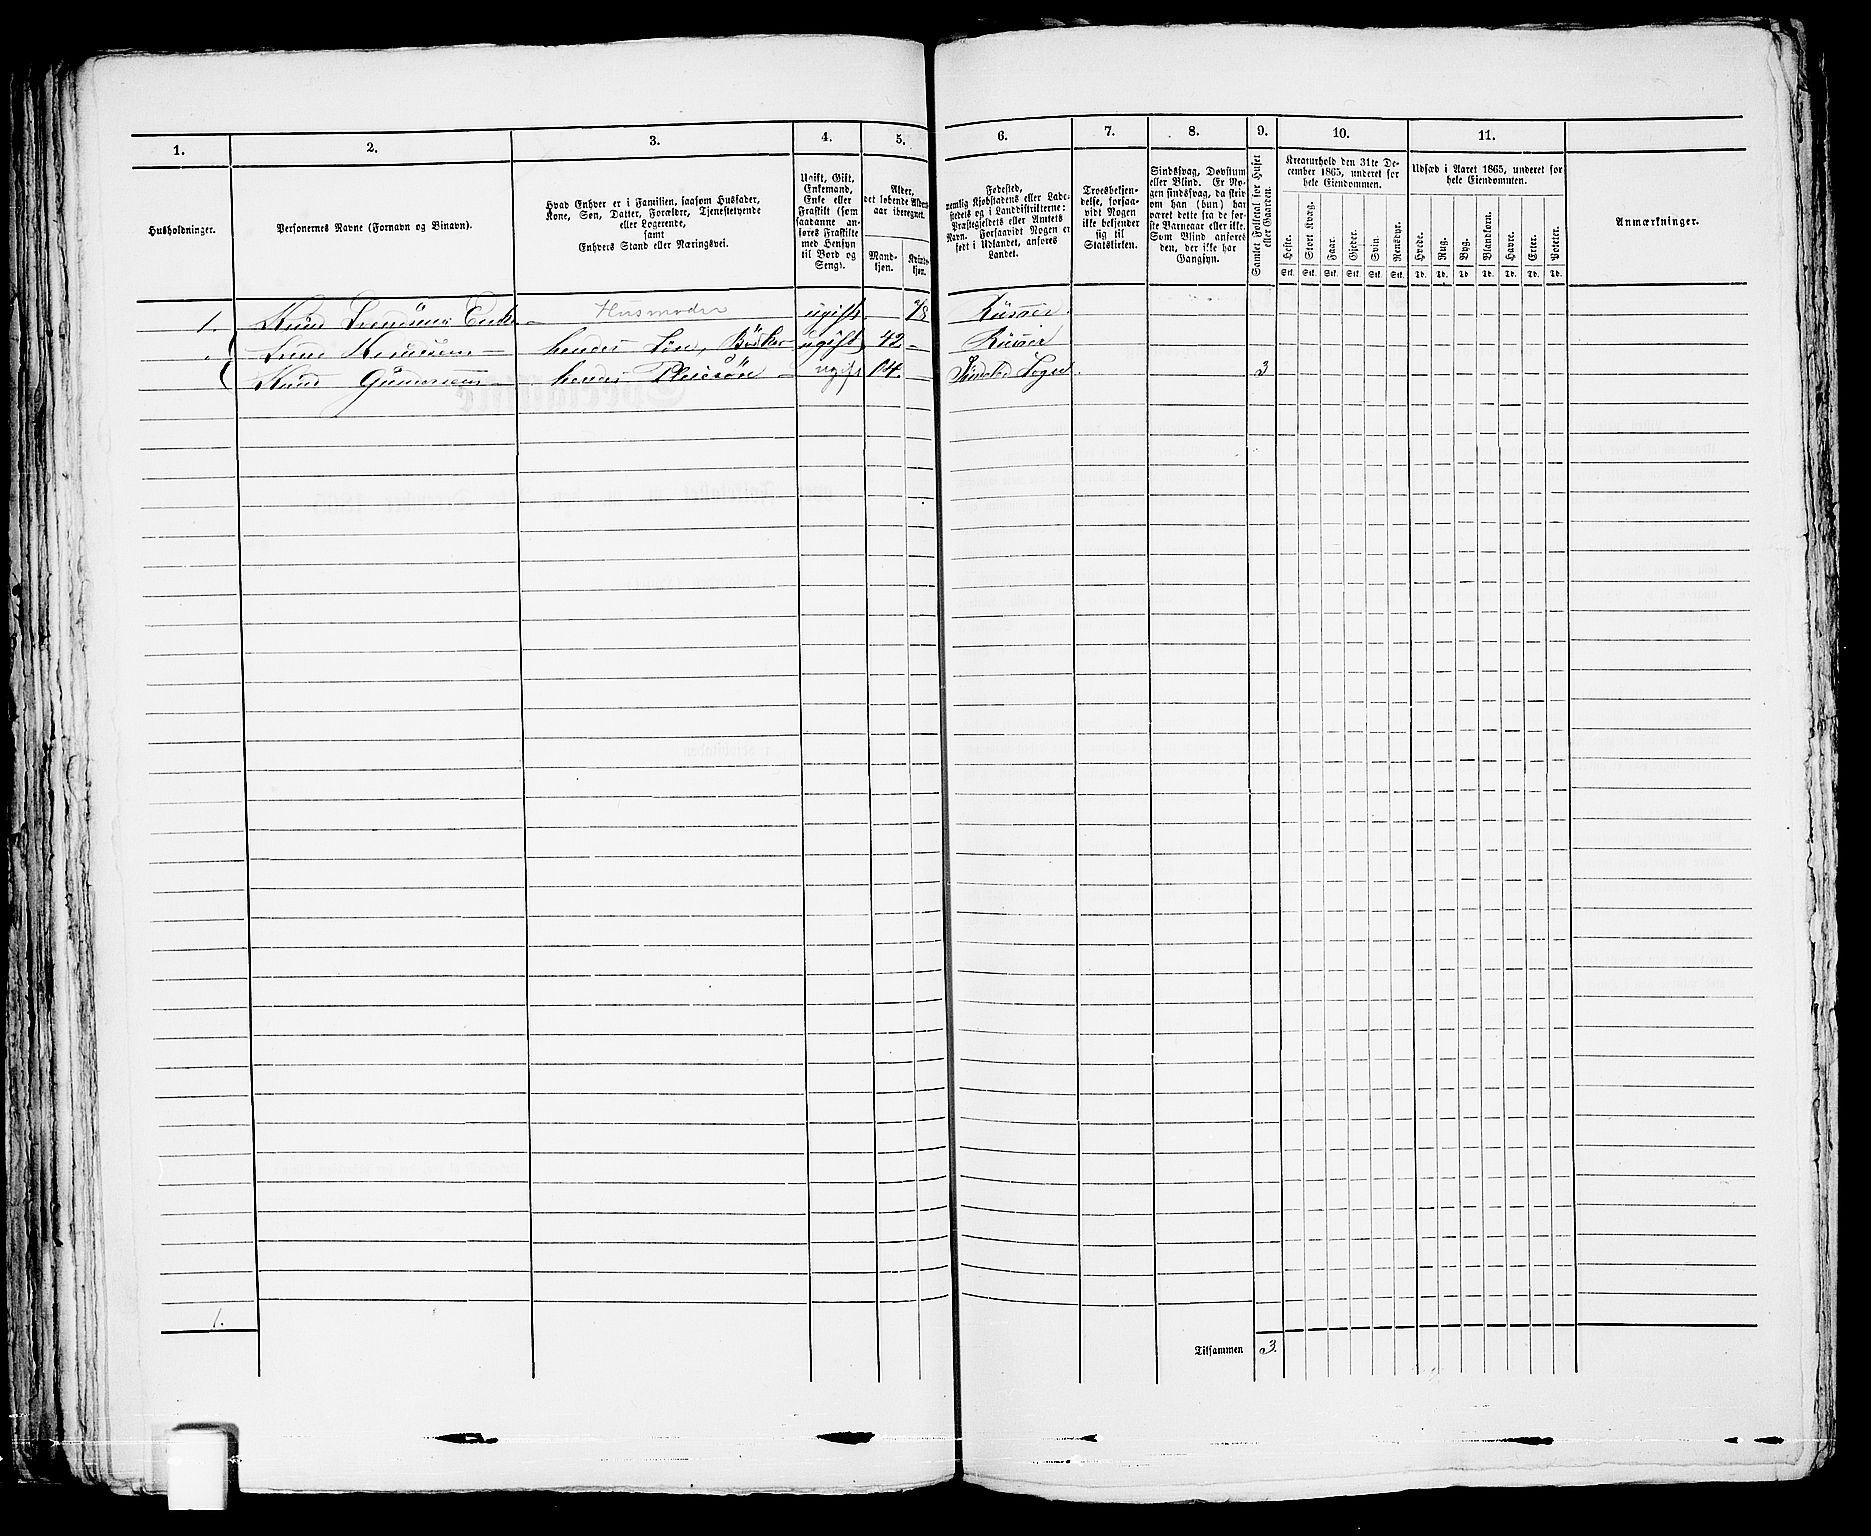 1. 2. 3. 4. 5. 6. 7. 8. 9. 10. 11.
Husholdninger.
Personernes Navne (Fornavn og Binavn).
Hvad Enhver er i Familien, saasom Husfader,
Kone, Søn, Datter, Forældre, Tjenestetyende
eller Logerende,
samt
Enhvers Stand eller Næringsvei.
Ugift, Gift,
Enkemand,
Enke eller
Fraskilt (som
saadanne an-
føres Fraskilte
med Hensyn
til Bord og
Seng).
Alder,
det løbende Alders-
aar iberegnet.
Mand-
kjøn.
Kvinde-
kjøn.
Fødested,
nemlig Kjøbstadens eller Lade-
stedets og i Landdistrikterne:
Præstegjeldets eller Amtets
Navn. Forsaavidt Nogen er
født i Udlandet, anføres
Landet.
Troesbekjen-
delse, forsaa-
vidt Nogen
ikke bekjender
sig til
Statskirken.
Sindssvag, Døvstum
eller Blind. Er No-
gen sindssvag, da skri-
ves om han (hun) har
været dette fra de før-
ste Barneaar eller ikke.
Som Blind anføres
den, der ikke har
Gangsyn.
Samlet Folketal for Huset
eller Gaarden.
Kreaturhold den 31te De-
cember 1865, underet for
hele Eiendommen.
Heste. Stort Kvæg. Faar. Gjeder. Svin. Rensdyr.
Stk. Stk. Stk. Stk. Stk. Stk.
Udsæd i Aaret 1865, underet for
hele Eiendommen.
Hvede. Rug. Byg. Blandkorn. Havre. Erter. Poteter.
Td. Td. Td. Td. Td. Td. Td.
Anmærkninger.
1. Knud Svendsens Enke Husmoder ugift Riisøer
Svend Knudsen hendes Søn, Bødker ugift 42 Riisøer
Knud Gundersen hendes Pleiesøn ugift 14 Søndeled Sogn 3
1.
Tilsammen 3.